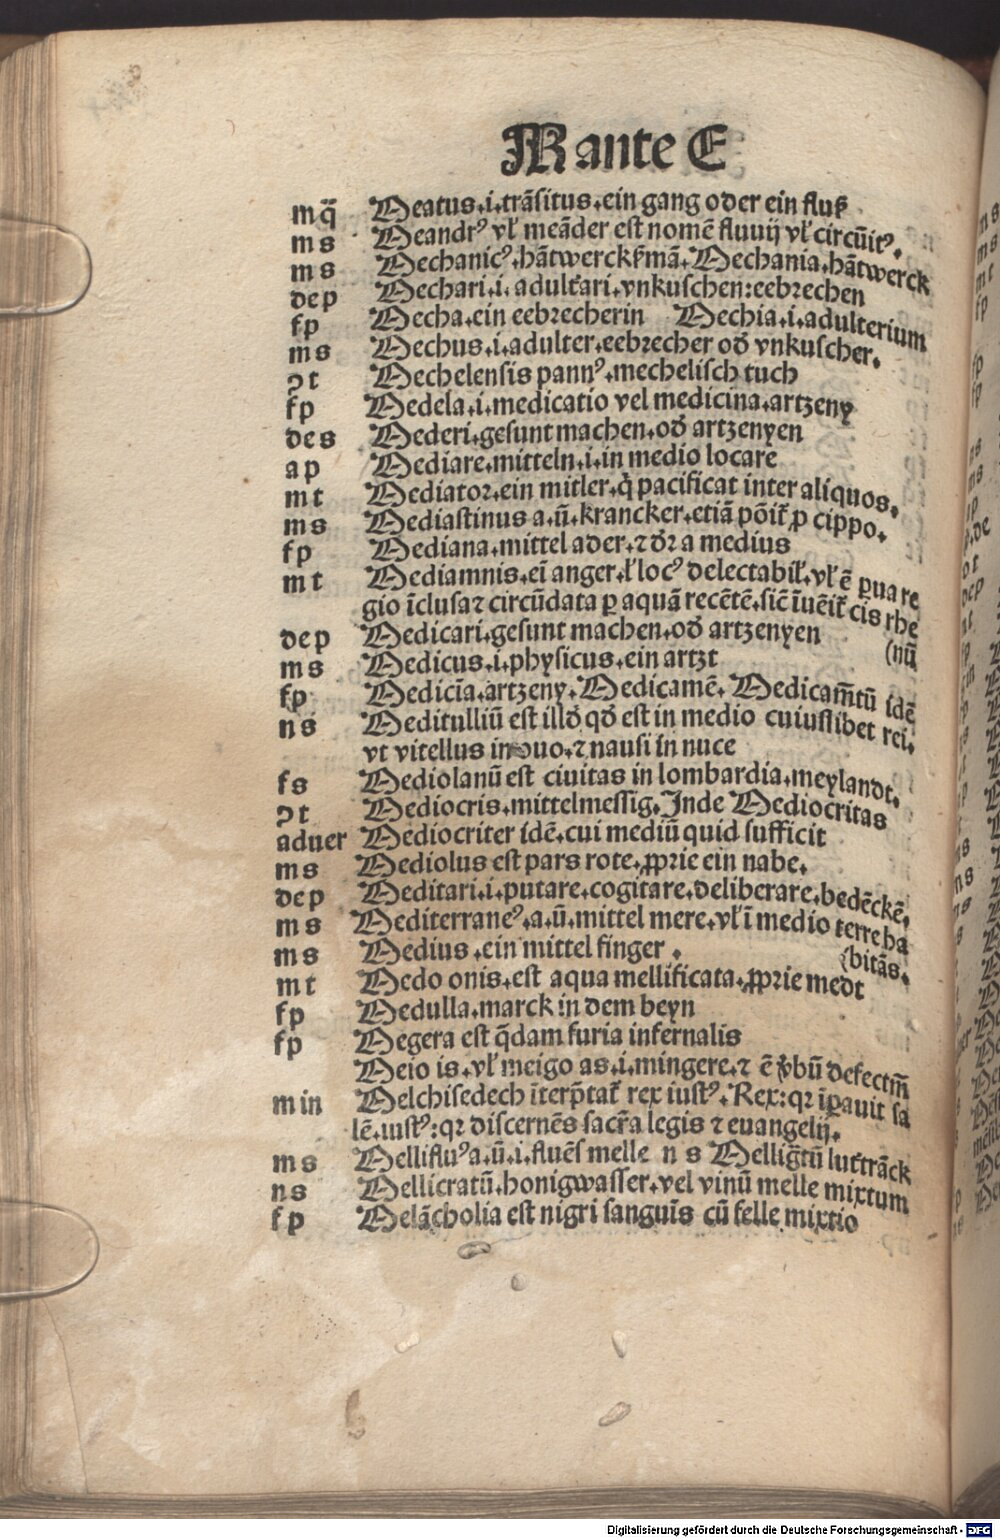 M ante E
mq̃ Meatus.i.trãsitus.ein gang oder ein fluß
ms Meandrꝰ vl̕ meãder est nomẽ fluuij vl̕ circũitꝰ.
ms Mechanicꝰ.hãtwerckß̃mã.Mechania.hãtwerck
dep Mechari.i.adult̕ari.vnkuschen:eebrechen
fp Mecha.ein eebrecherin Mechia.i.adulterium
ms Mechus.i.adulter.eebrecher od̕ vnkuscher.
ꝯt Mechelensis pannꝰ.mechelisch tuch
fp Medela.i.medicatio vel medicina.artzeny
des Mederi.gesunt machen.od̕ artzenyen
ap Mediare.mitteln.i.in medio locare
mt Mediator.ein mitler.q̇ pacificat inter aliquos.
ms Mediastinus a.ũ.krancker.etiã põit̕ ꝓ cippo.
fp Mediana.mittel ader.⁊ d̕r a medius
mt Mediamnis.eĩ anger.l̕ locꝰ delectabil̕.vl̕ ẽ ꝑua re
gio ĩclusa ⁊ circũdata ꝑ aquã recẽtẽ.sic̃ ĩuẽit̕ cis rhe
dep Medicari.gesunt machen.od̕ artzenyen (nũ
ms Medicus.i.physicus.ein artzt
fp Medicĩa.artzeny.Medicamẽ.Medicam̃tũ idẽ
ns Meditulliũ est illd̕ qd̕ est in medio cuiuslibet rei.
vt vitellus in ouo.⁊ nausi in nuce
fs Mediolanũ est ciuitas in lombardia.meylandt.
ꝯt Mediocris.mittelmessig.Inde Mediocritas
aduer Mediocriter idẽ.cui mediũ quid sufficit
ms Mediolus est pars rote.ꝓprie ein nabe.
dep Meditari.i.putare.cogitare.deliberare.bedẽckẽ.
ms Mediterraneꝰ.a.ũ.mittel mere.vl̕ ĩ medio terre ha
ms Medius.ein mittel finger. (bitãs.
mt Medo onis.est aqua mellificata.ꝓprie medt
fp Medulla.marck in dem beyn
fp Megera est q̃dam furia infernalis
Meio is.vl̕ meigo as.i.mingere.⁊ ẽ v̕bũ defectm̃
min Melchisedech ĩterp̃tat̕ rex iustꝰ.Rex:qꝛ ĩꝑauit sa
lẽ.iustꝰ:qꝛ discernẽs sacr̃a legis ⁊ euangelij.
ms Mellifluꝰ a.ũ.i.fluẽs melle n s Mellig̃tũ lut̕trãck
ns Mellicratũ.honigwasser.vel vinũ melle mixtum
fp Melãcholia est nigri sanguĩs cũ felle mixtio
Digitalisierung gefördert durch die Deutsche Forschungsgemeinschaft - DFG